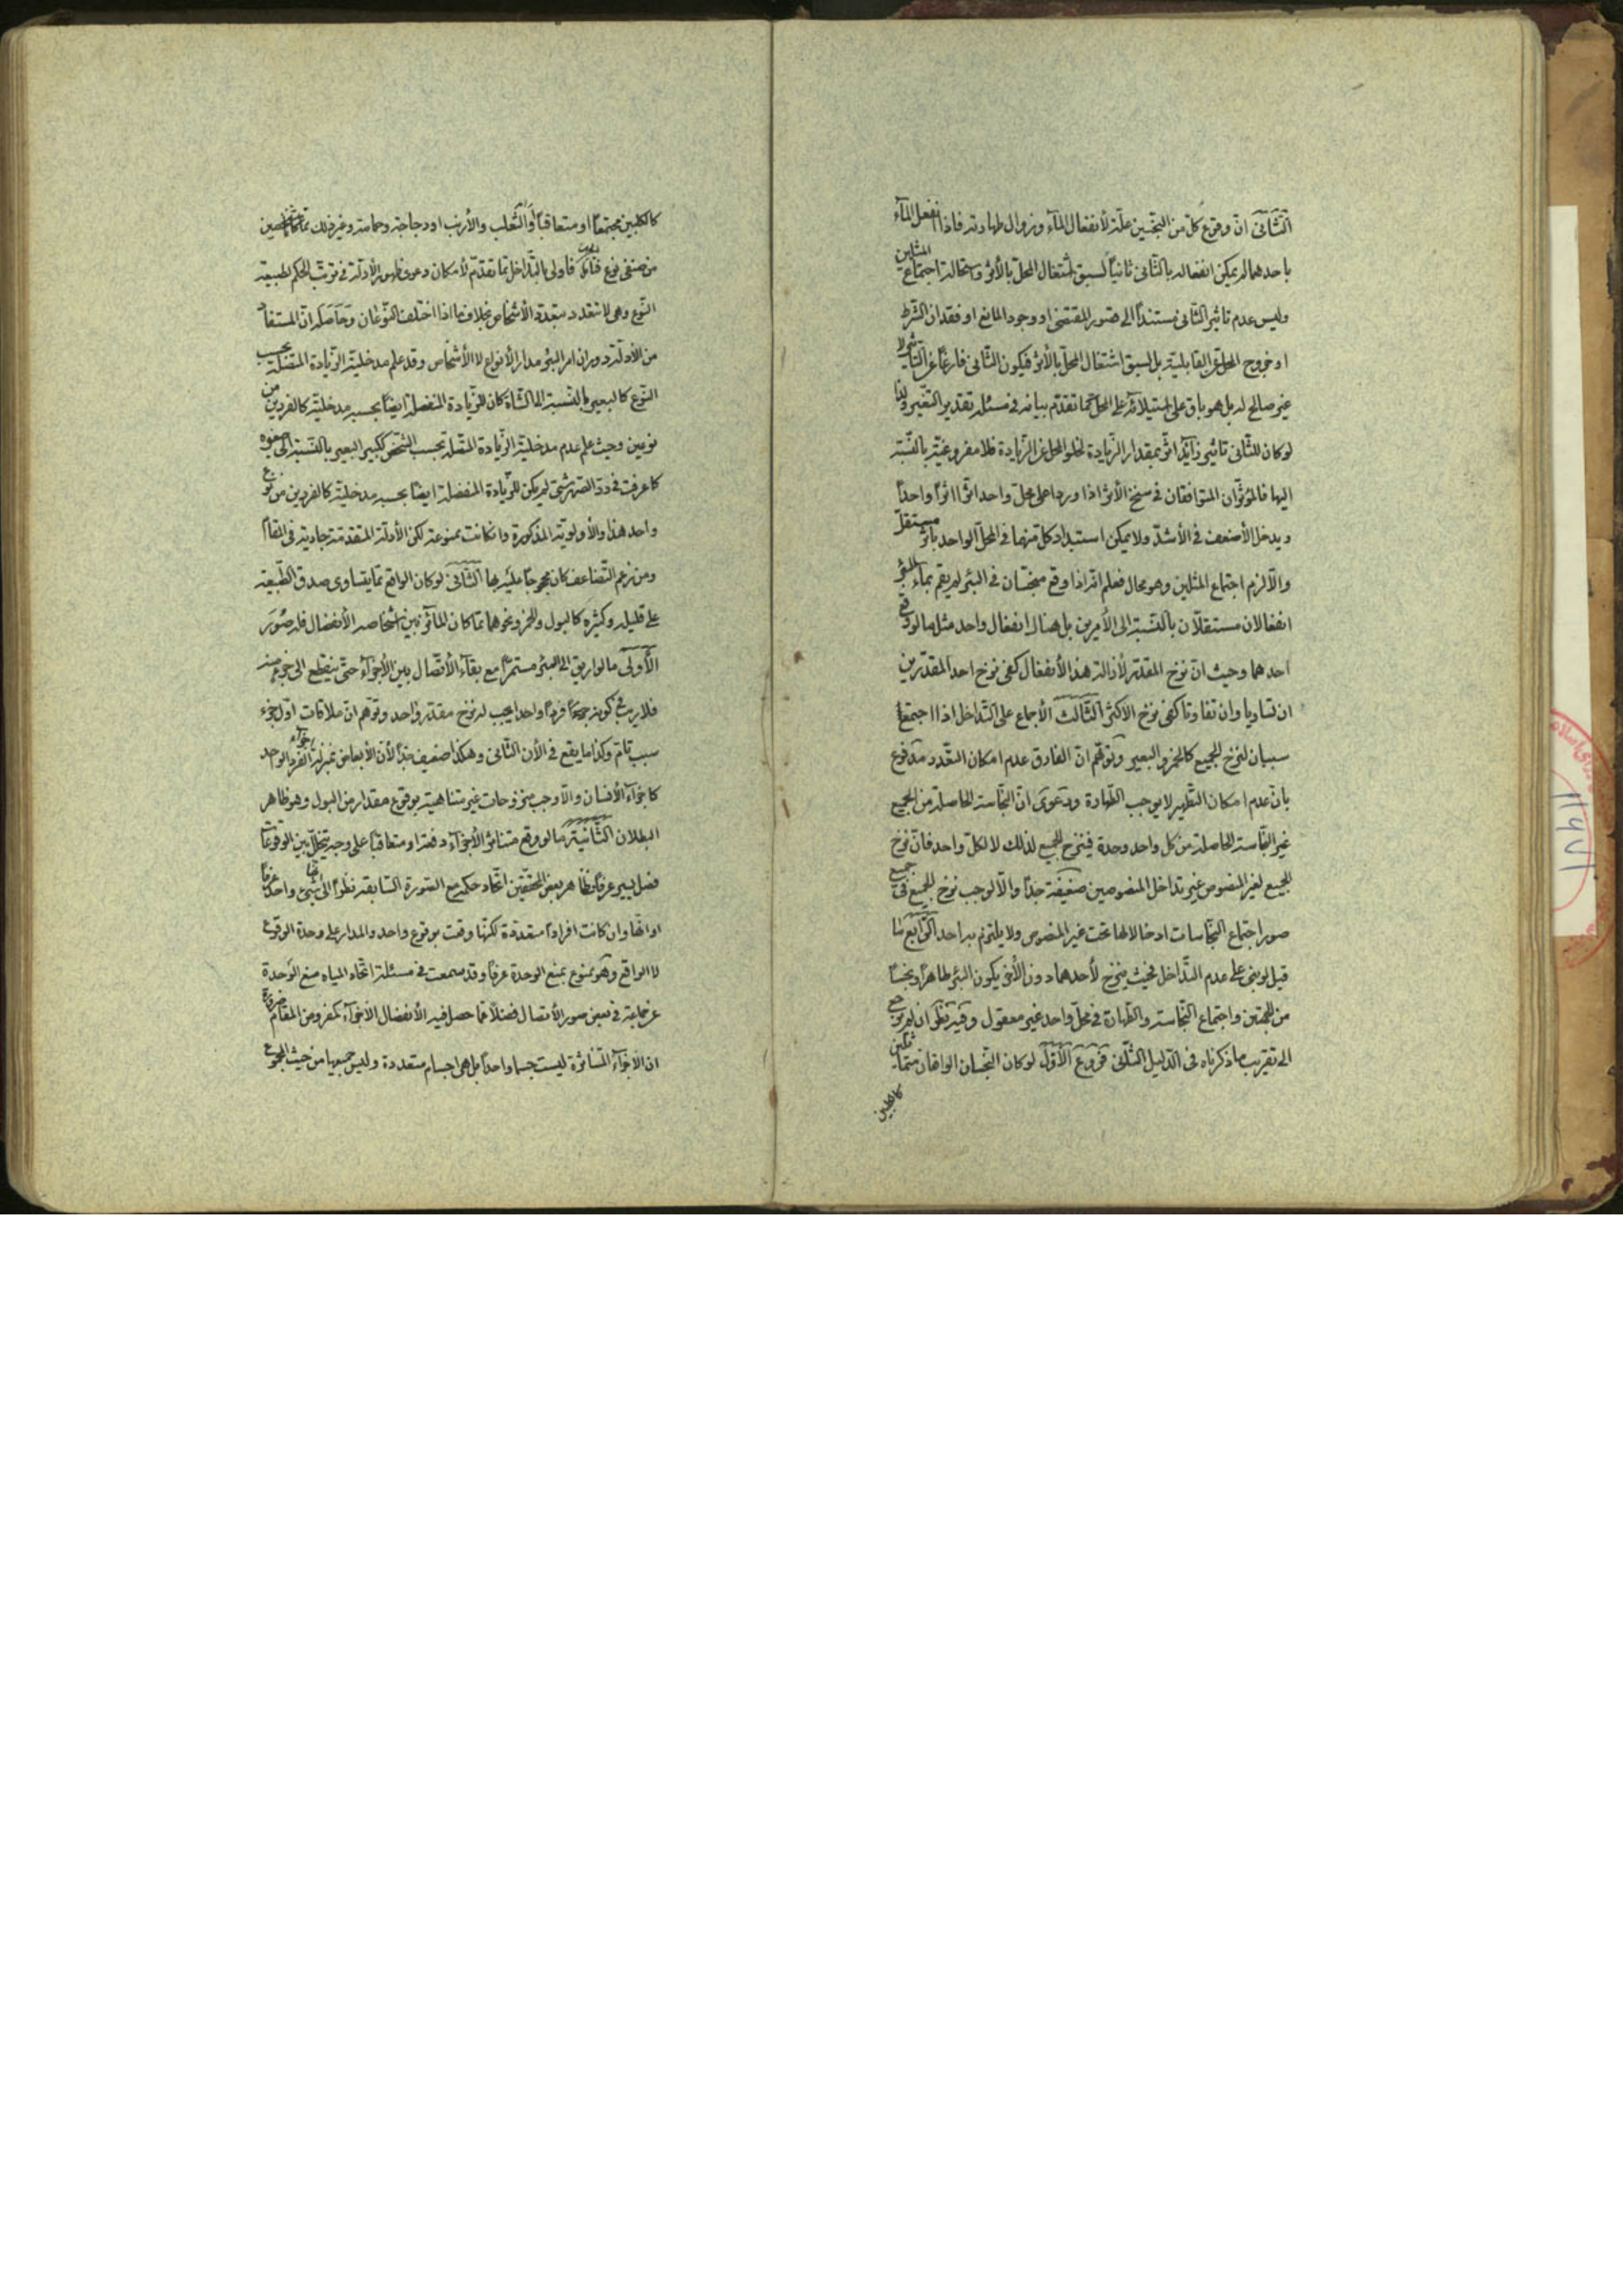 الثّانی انّ وقوع کلّ من النجسین علّة لأنفعال المآء وزوال طهارته فاذا انفعل المآء
باحدهما لم یمکن انفعاله بالثّانی ثانیاً لسبق اشتغال المحلّ بالأثر واستحالة اجتماع المثلین
ولیس عدم تاثیر الثّانی مستنداً الی قصور المقتضی او وجود المانع او فقدان الشّرط
او خروج المحلّ عن القابلیّة بل لسبق اشتغال المحلّ بالأثر فیکون الثّانی فارغاً عن التّاثیر لا
غیر صالح له بل هو باق علی استیلائه علی المحلّ کما تقدّم بیانه فی مسئلة تقدیر التغیّر ولذا
لو کان للثّانی تاثیر زآید اثّر بمقدار الزّیادة لخلوّ المحلّ عن الزّیادة فلا مفروغیّة بالنّسبة
الیها فالمؤثّران المتوافقان فی سنخ الأثر اذا وردا علی محلّ واحد اثّرا اثراً واحداً
ویدخل الأضعف فی الأشدّ ولا یمکن استبداد کلّ منهما فی المحلّ الواحد باثر مستقلّ
والّا لزم اجتماع المثلین وهو محال فعلم انّه اذا وقع منجّسان فی البئر لم یقم بمآء البئر
انفعالان مستقلّان بالنّسبة الی الأمرین بل هناک انفعال واحد مثل ما لو وقع
احدهما وحیث انّ نزح المقدّر لأزالة هذا الأنفعال کفی نزح احد المقدّرین
ان تساویا وان تفاوتا کفی نزح الاکثر الثّالث الأجماع علی التّداخل اذا اجتمع
سببان لنزح الجمیع کالخمر والبعیر وتوهّم انّ الفارق عدم امکان التعّدد مدفوع
بانّ عدم امکان التّطهیر لا یوجب الطّهارة ودعوی انّ النّجاسة الحاصلة من الجمیع
غیر النّجاسة الحاصلة من کل واحد وحدة فینزح الجمیع لذلک لا لکلّ واحد فانّ نزح
الجمیع لغیر المنصوص غیر تداخل المنصوصین ضعیفة جدّاً والّا لوجب نزح الجمیع فی جمیع
صور اجتماع النّجاسات ادخالا لها تحت غیر المنصوص ولا یلتزم به احد الرّابع ما
قیل لو بنی علی عدم التّداخل بحیث ینزح لأحدهما دون الأخر یکون البئر طاهراً ونجساً
من الجهتین واجتماع النّجاسة والطّهارة فی محلّ واحد غیر معقول وفیه نظر ان لم یرجع
الی تقریب ما ذکرناه فی الدّلیل الثّانی فروع الأوّل لو کان النّجسان الواقعان متماثلین
کالکلبین
کالکلبین مجتمعاً او متعاقباً والثّعلب والأرنب او دجاجة وحمامة وغیر ذلک ممّا کانا
من صنفی نوع فاولی بالتّداخل ممّا تقدّم لأمکان دعوی ظهور الأدلّة فی ترتّب الحکم لطبیعة
النّوع وهی لا تتعدد بتعدّد الأشخاص بخلاف ما اذا اختلف النّوعان وحاصله انّ المستفاد
من الأدلّة دوران امر البئر مدار الأنواع لا الأشخاص وقد علم مدخلیّة الزّیادة المتّصلة بحسب
النّوع کالبعیر بالنّسبة الی الشّاة کان للزّیادة المنفصلة ایضاً بحسبه مدخلیّة کالفردین من
نوعین وحیث علم عدم مدخلیّة الزّیادة المتّصلة بحسب الشّخص ککبیر البعیر بالنّسبة الی صغیره
کما عرفت فی ردّ الصّهرشتی لم یکن للزّیادة المنفصلة ایضاً بحسبه مدخلیّة کالفردین من نوع
واحد هذا والأولویّة المذکورة وان کانت ممنوعة لکن الأدلّة المتقدّمة جاریة فی المقام
ومن زعم التّضاعف کان محجوجاً علیه بها الثّانی لو کان الواقع ممّا یتساوی صدق الطّبیعة
علی قلیله وکثیره کالبول والخمر ونحوهما ممّا کان المائز بین اشخاصه الأنفصال فله صُوَر
الأولی ما لو اریق الی البئر مستمرّاً مع بقآء الأتّصال بین الأجزآء حتّی ینقطع الی جزء منه
فلا ریب فی کونه جمیعاً فرداً واحداً یجب له نزح مقدّر واحد وتوهّم انّ ملاقات اوّل جزء
سبب تامّ وکذا ما یقع فی الأن الثّانی وهکذا ضعیف جدّاً لأنّ الأبعاض بمنزلة اجزآء الفرد الواحد
کاجزآء الأنسان والّا وجب منزوحات غیر متناهیة بوقوع مقدار من البول وهو ظاهر
البطلان الثّانیة ما لو وقع متناثر الأجزآء دفعة او متعاقباً علی وجه یتخلّل بین الوقوعات
فصل یسیر عرفاً وظاهر بعض المحقّقین اتّحاد حکمه مع الصّورة السّابقة نظراً الی انّها شیء واحد عرفاً
او انّها وان کانت افراداً متعدّدة لکنّها وقعت بوقوع واحد والمدار علی وحدة الوقوع
لا الواقع وهو ممنوع بمنع الوحدة عرفاً وقد سمعت فی مسئلة اتّحاد المیاه منع الوحدة
عن جماعة فی بعض صور الأتصال فضلاً عمّا حصل فیه الأنفصال الأجزآء کمفروض المقام
ان الأجزآء المتناثرة لیست جسما واحداً بل هی اجسام متعددة ولیس جمیعها من حیث المجموع